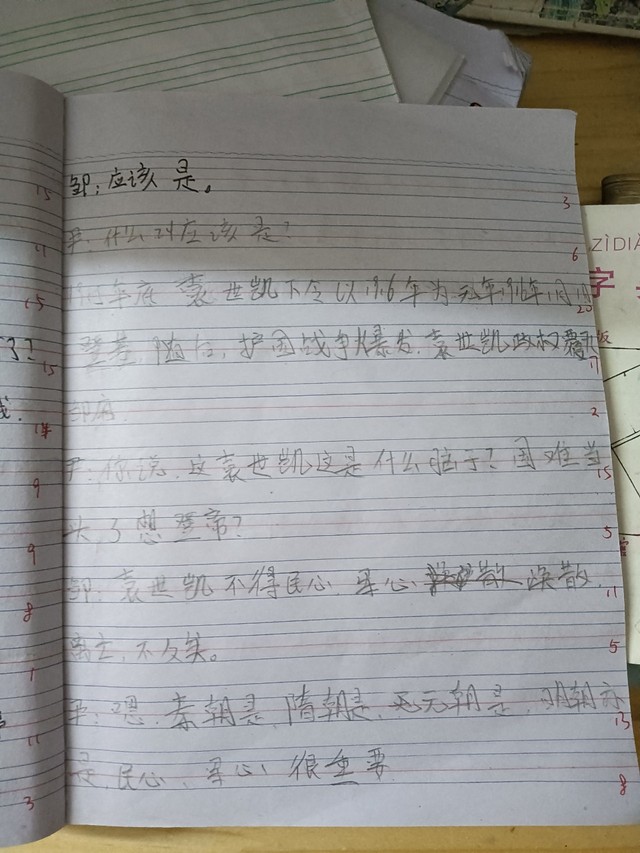 邹:应该是。
尹:什么叫应该是?
年底 袁世凯下令以1916年为元年,1916年1月1日
登基,随后,护国战争爆发.袁世凯政权覆
尹:你说,这袁世凯这是什么脑子?国难当
头,了想登帝?
邹:袁世凯不得民心,军心涣散
离亡,不久矣。
尹:嗯,秦朝是,隋朝是,元朝是,明朝亦
是,民心,军心,很重要
3
6
20
17
2
15
5
11
5
13
8
15
11
15
了?
15
战.
14
9
9
8
1
11
3
ZÌDIǍ
字
版